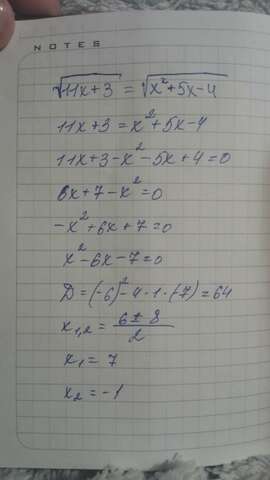 NOTES
√11x+3 = √x²+5x-4
11x+3 = x²+5x-4
11x+3-x²-5x+4=0
6x+7-x²=0
-x²+6x+7=0
x²-6x-7=0
D=(-6)²-4·1·(-7)=64
x₁,₂ = 6±8/2
x₁ = 7
x₂ = -1